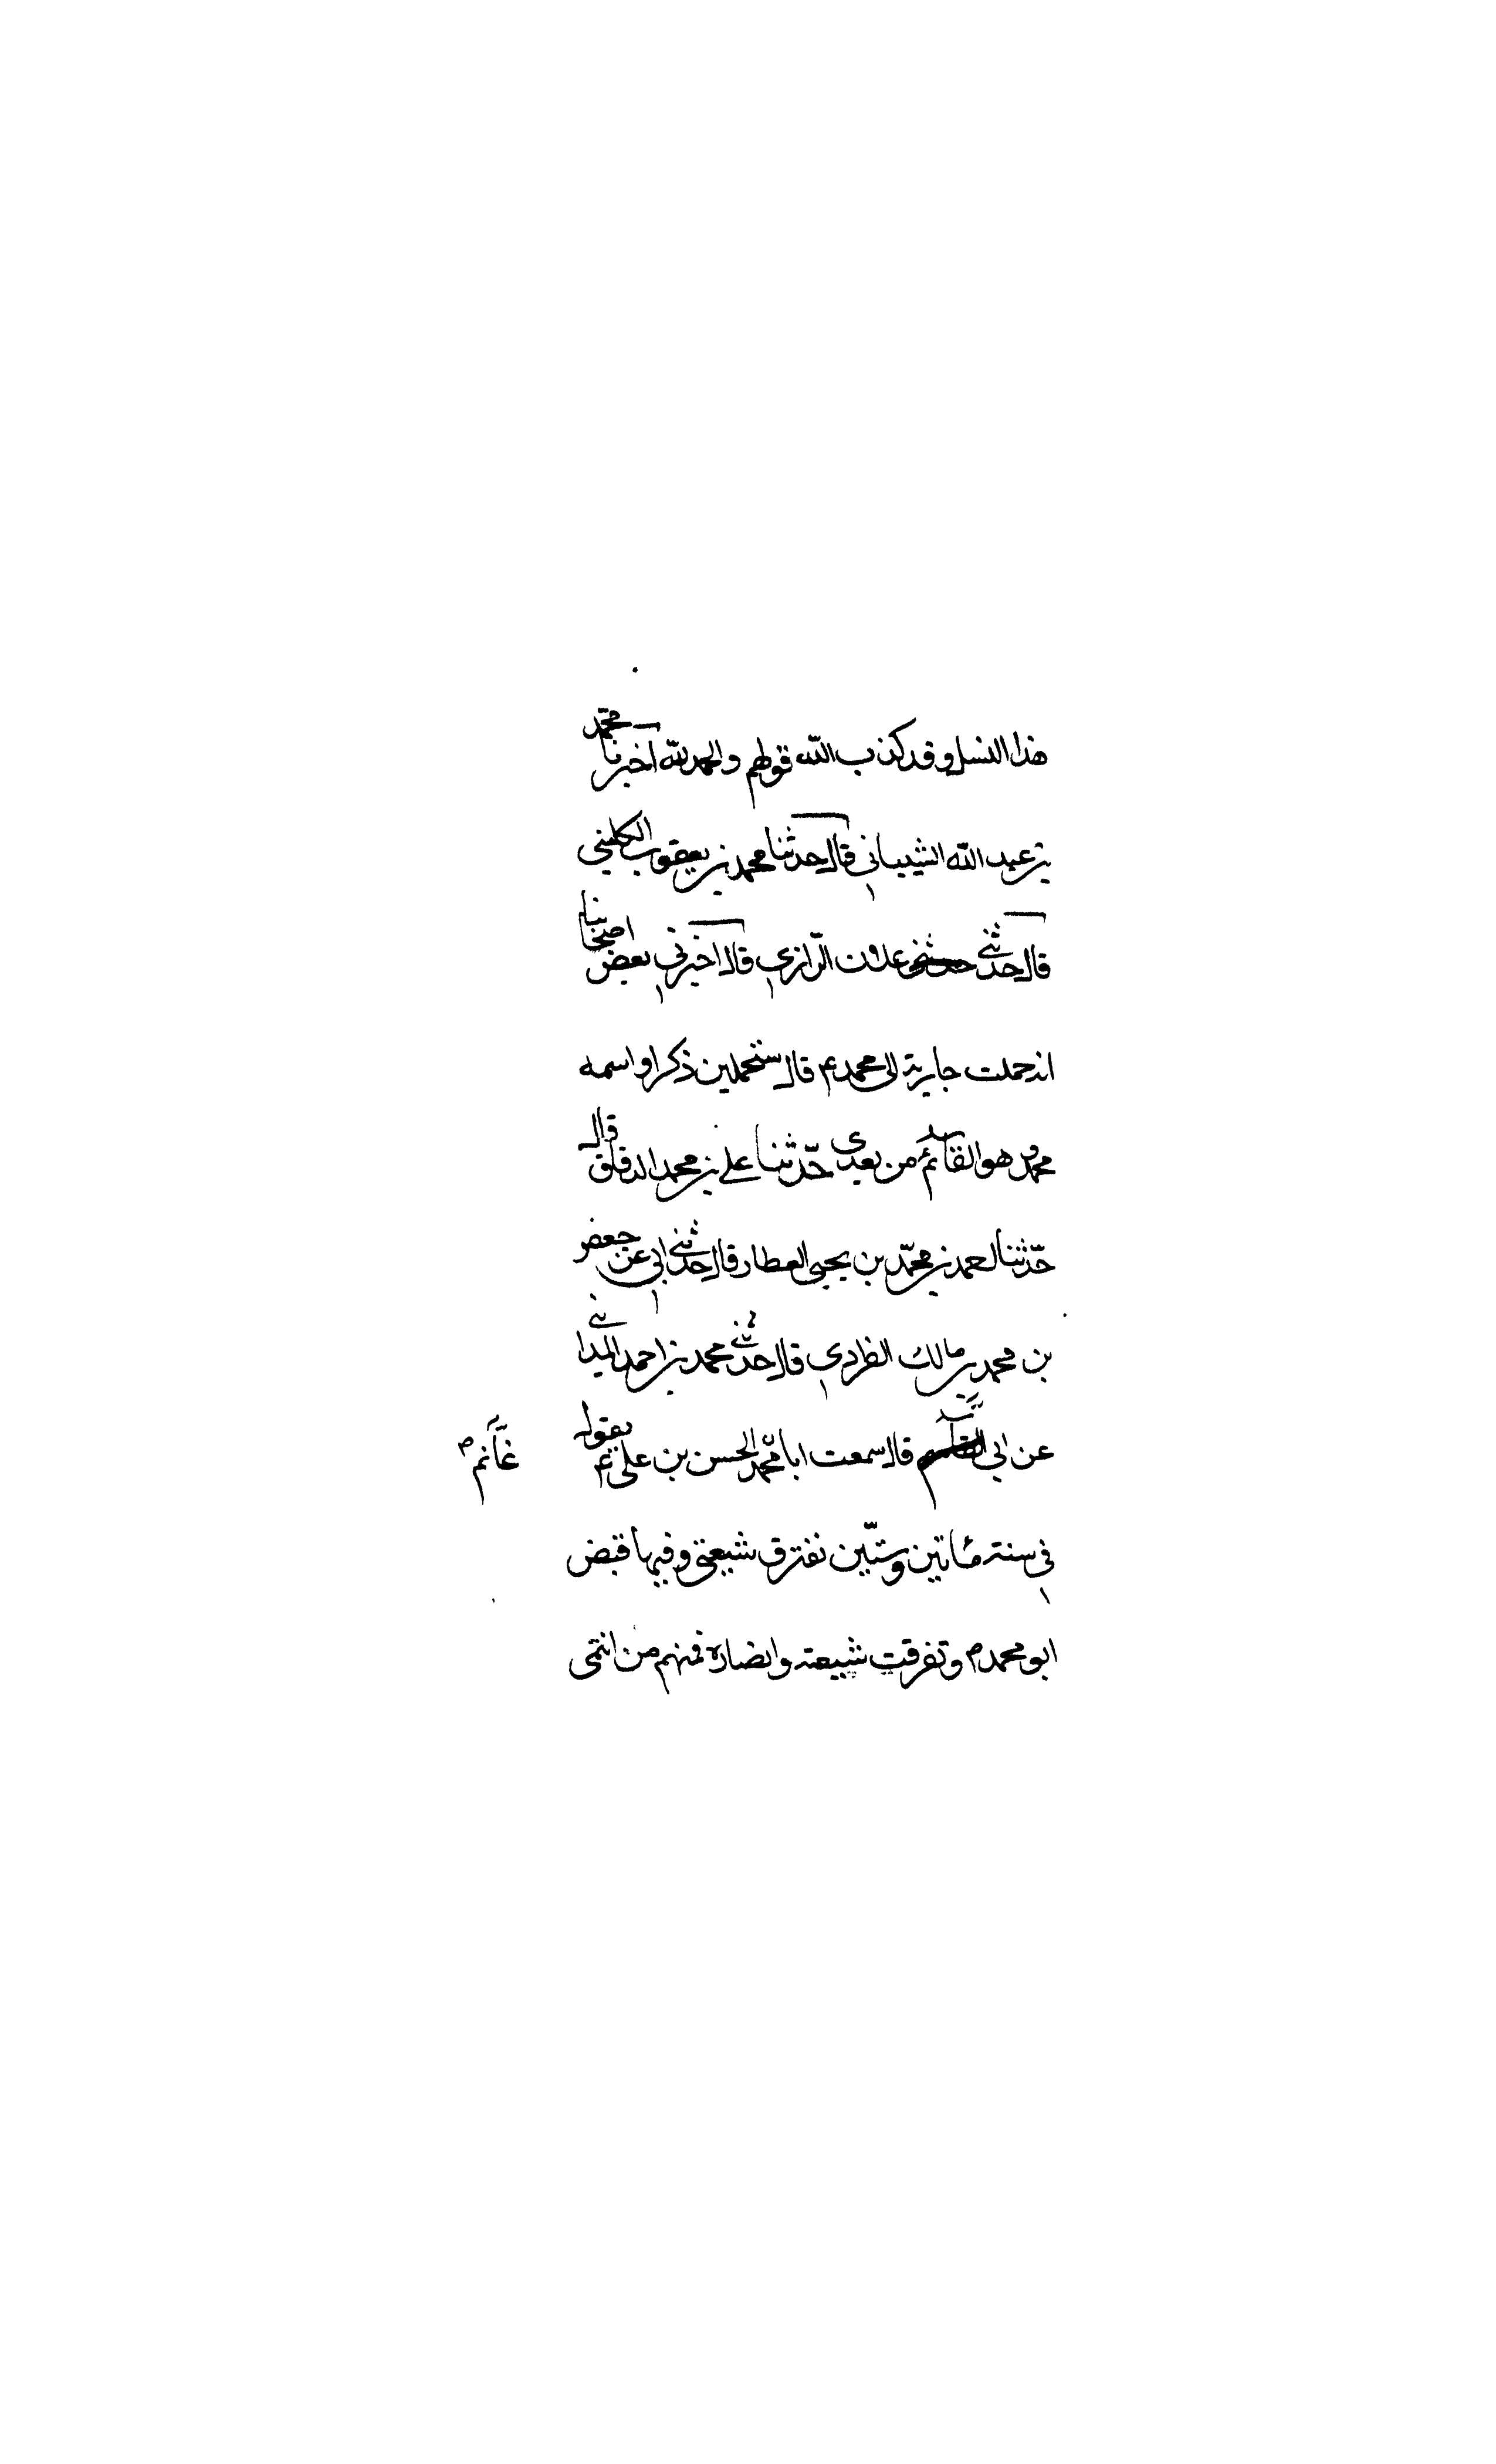 هذا النسل وقد كذب الله قولهم والحمد لله اخبرنا محمد
بن عبد الله الشيباني قال حدثنا محمد بن يعقوب الكليني
قال حدثني علان الرازي قال اخبرني بعض اصحابنا
انه حملت جارية ابي محمد ع قال ستحملين ذكرا واسمه
محمد وهو القائم من بعدي حدّثنا علي بن محمد الدقاق قال
حدّثنا احمد بن محمّد بن يحيى العطار قال حدثني ابي عن جعفر
بن محمد بن مالك الفزاري قال حدثني محمد بن احمد المدائني
عن ابي قال سمعت ابا محمّد الحسن بن علي ع يقول غانم
في سنة مائتين وستّين تفترق شيعتي وفيها قبض
ابو محمد وتفرقت شيعته وانصاره فمنهم من انتمى